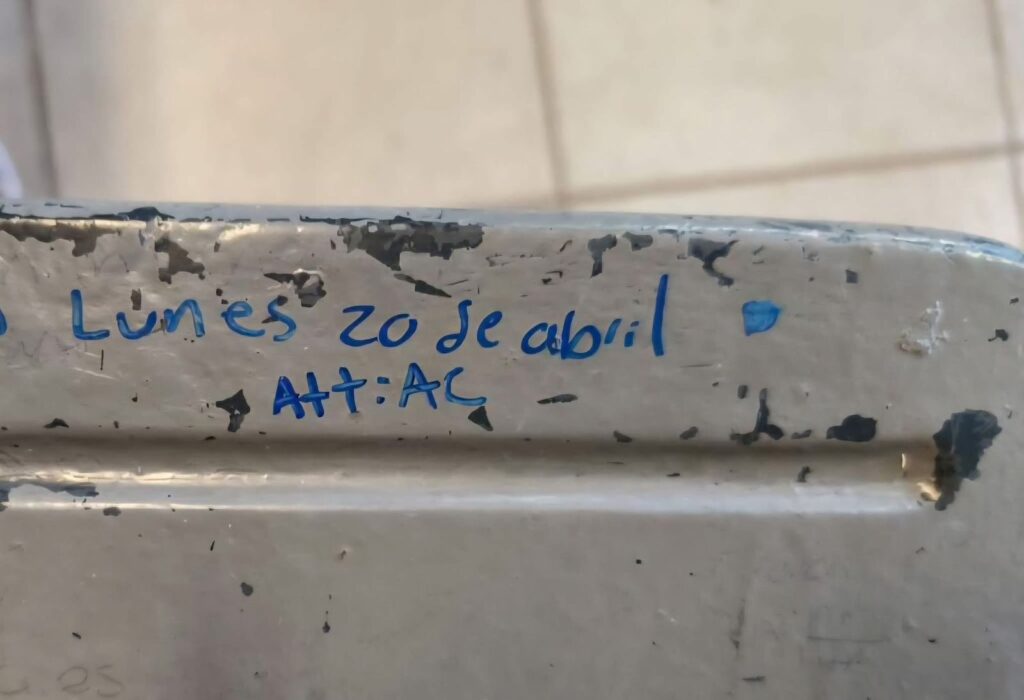 Lunes 20 de abril
Att: AC